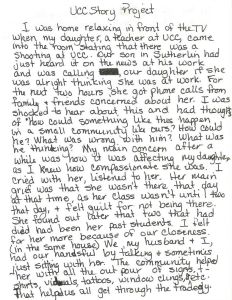 UCC Story Project
I was home relaxing in front of the TV
when my daughter, a teacher at UCC, came
into the room stating that there was a
Shooting at UCC. Our son in Sutherlin had
just heard it on the news at his work
and was calling our daughter if she
was alright thinking she was at work. For
the next two hours she got phone calls from
family & friends concerned about her. I was
shocked to hear about this and had thoughts
of "how could something like this happen
in a small community like ours? How could
he? What was wrong with him? What was
he thinking? My main concern after a
while was how it was affecting my daughter,
as I knew how compassionate she was. I
cried with her, listened to her. Her main
grief was that she wasn't there that day
at that time, as her class wasn't until 1
that day, & felt guilt for not being there.
She found out later that two that had
died had been her past students. I felt
for her more because of our closeness
(in the same house) We, my husband & I
had our hands full by talking & sometimes
just sitting with her. The community helped
her with all the out pour of signs, t-
shirts, tattoos, window clings, etc.
that helped us all get through the tragedy.